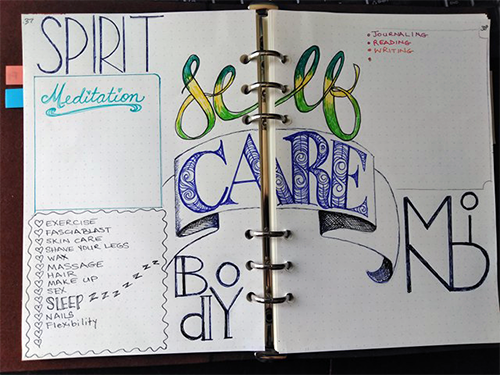 37
SPIRIT
Meditation
EXERCISE
FASCIABLAST
SKIN CARE
SHAVE YOUR LEGS
WAX
MASSAGE
HAIR
MAKE UP
SEX
SLEEP Z Z Z Z Z Z Z
NAILS
Flexibility
self
CARE
BODY
JOURNALING
READING
WRITING
MIND